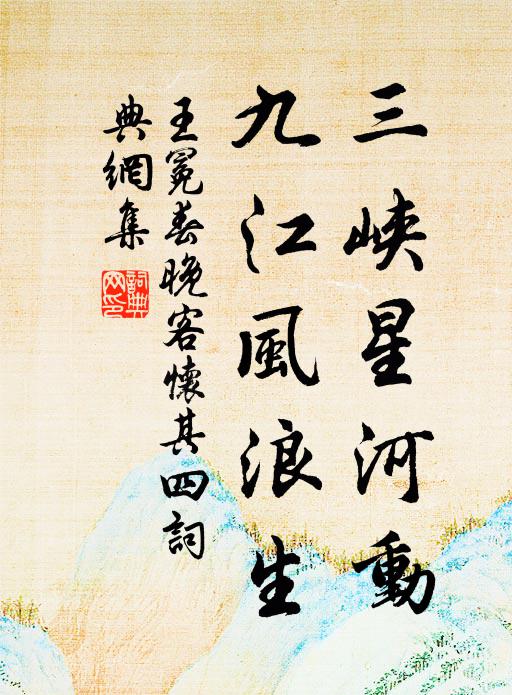 三峡星河動
九江風浪生
王冕春晚客懷其四詞
典網集
詞典网印